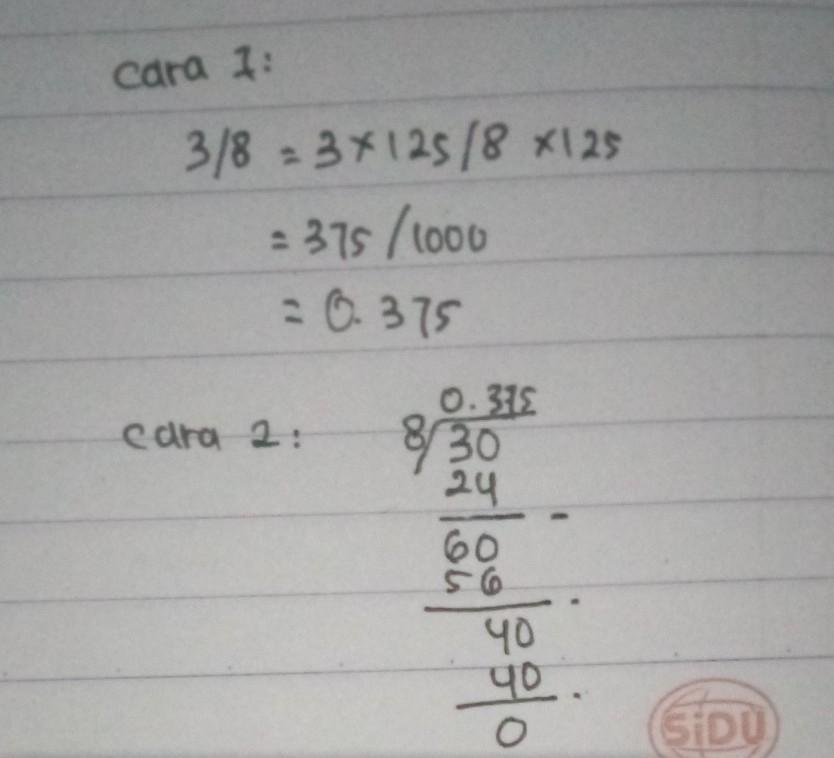 Cara 1:
3/8 = 3×125/8 ×125
= 375/1000
= 0.375
Cara 2:
0.375
8/30
24
-
60
56
40
40
0
SiDU